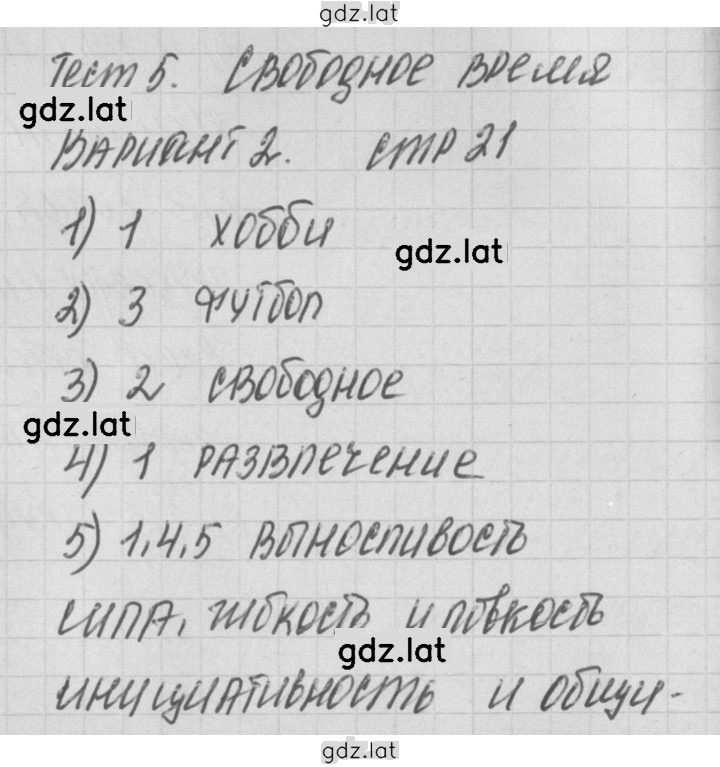 gdz.lat
Тест 5. Свободное время
gdz.lat
Вариант 2. стр 21
1) 1 хобби
gdz.lat
2) 3 футбол
3) 2 свободное
gdz.lat
4) 1 развлечение
5) 1,4,5 выносливость
сила, гибкость и ловкость
gdz.lat
инициативность и общи-
gdz.lat